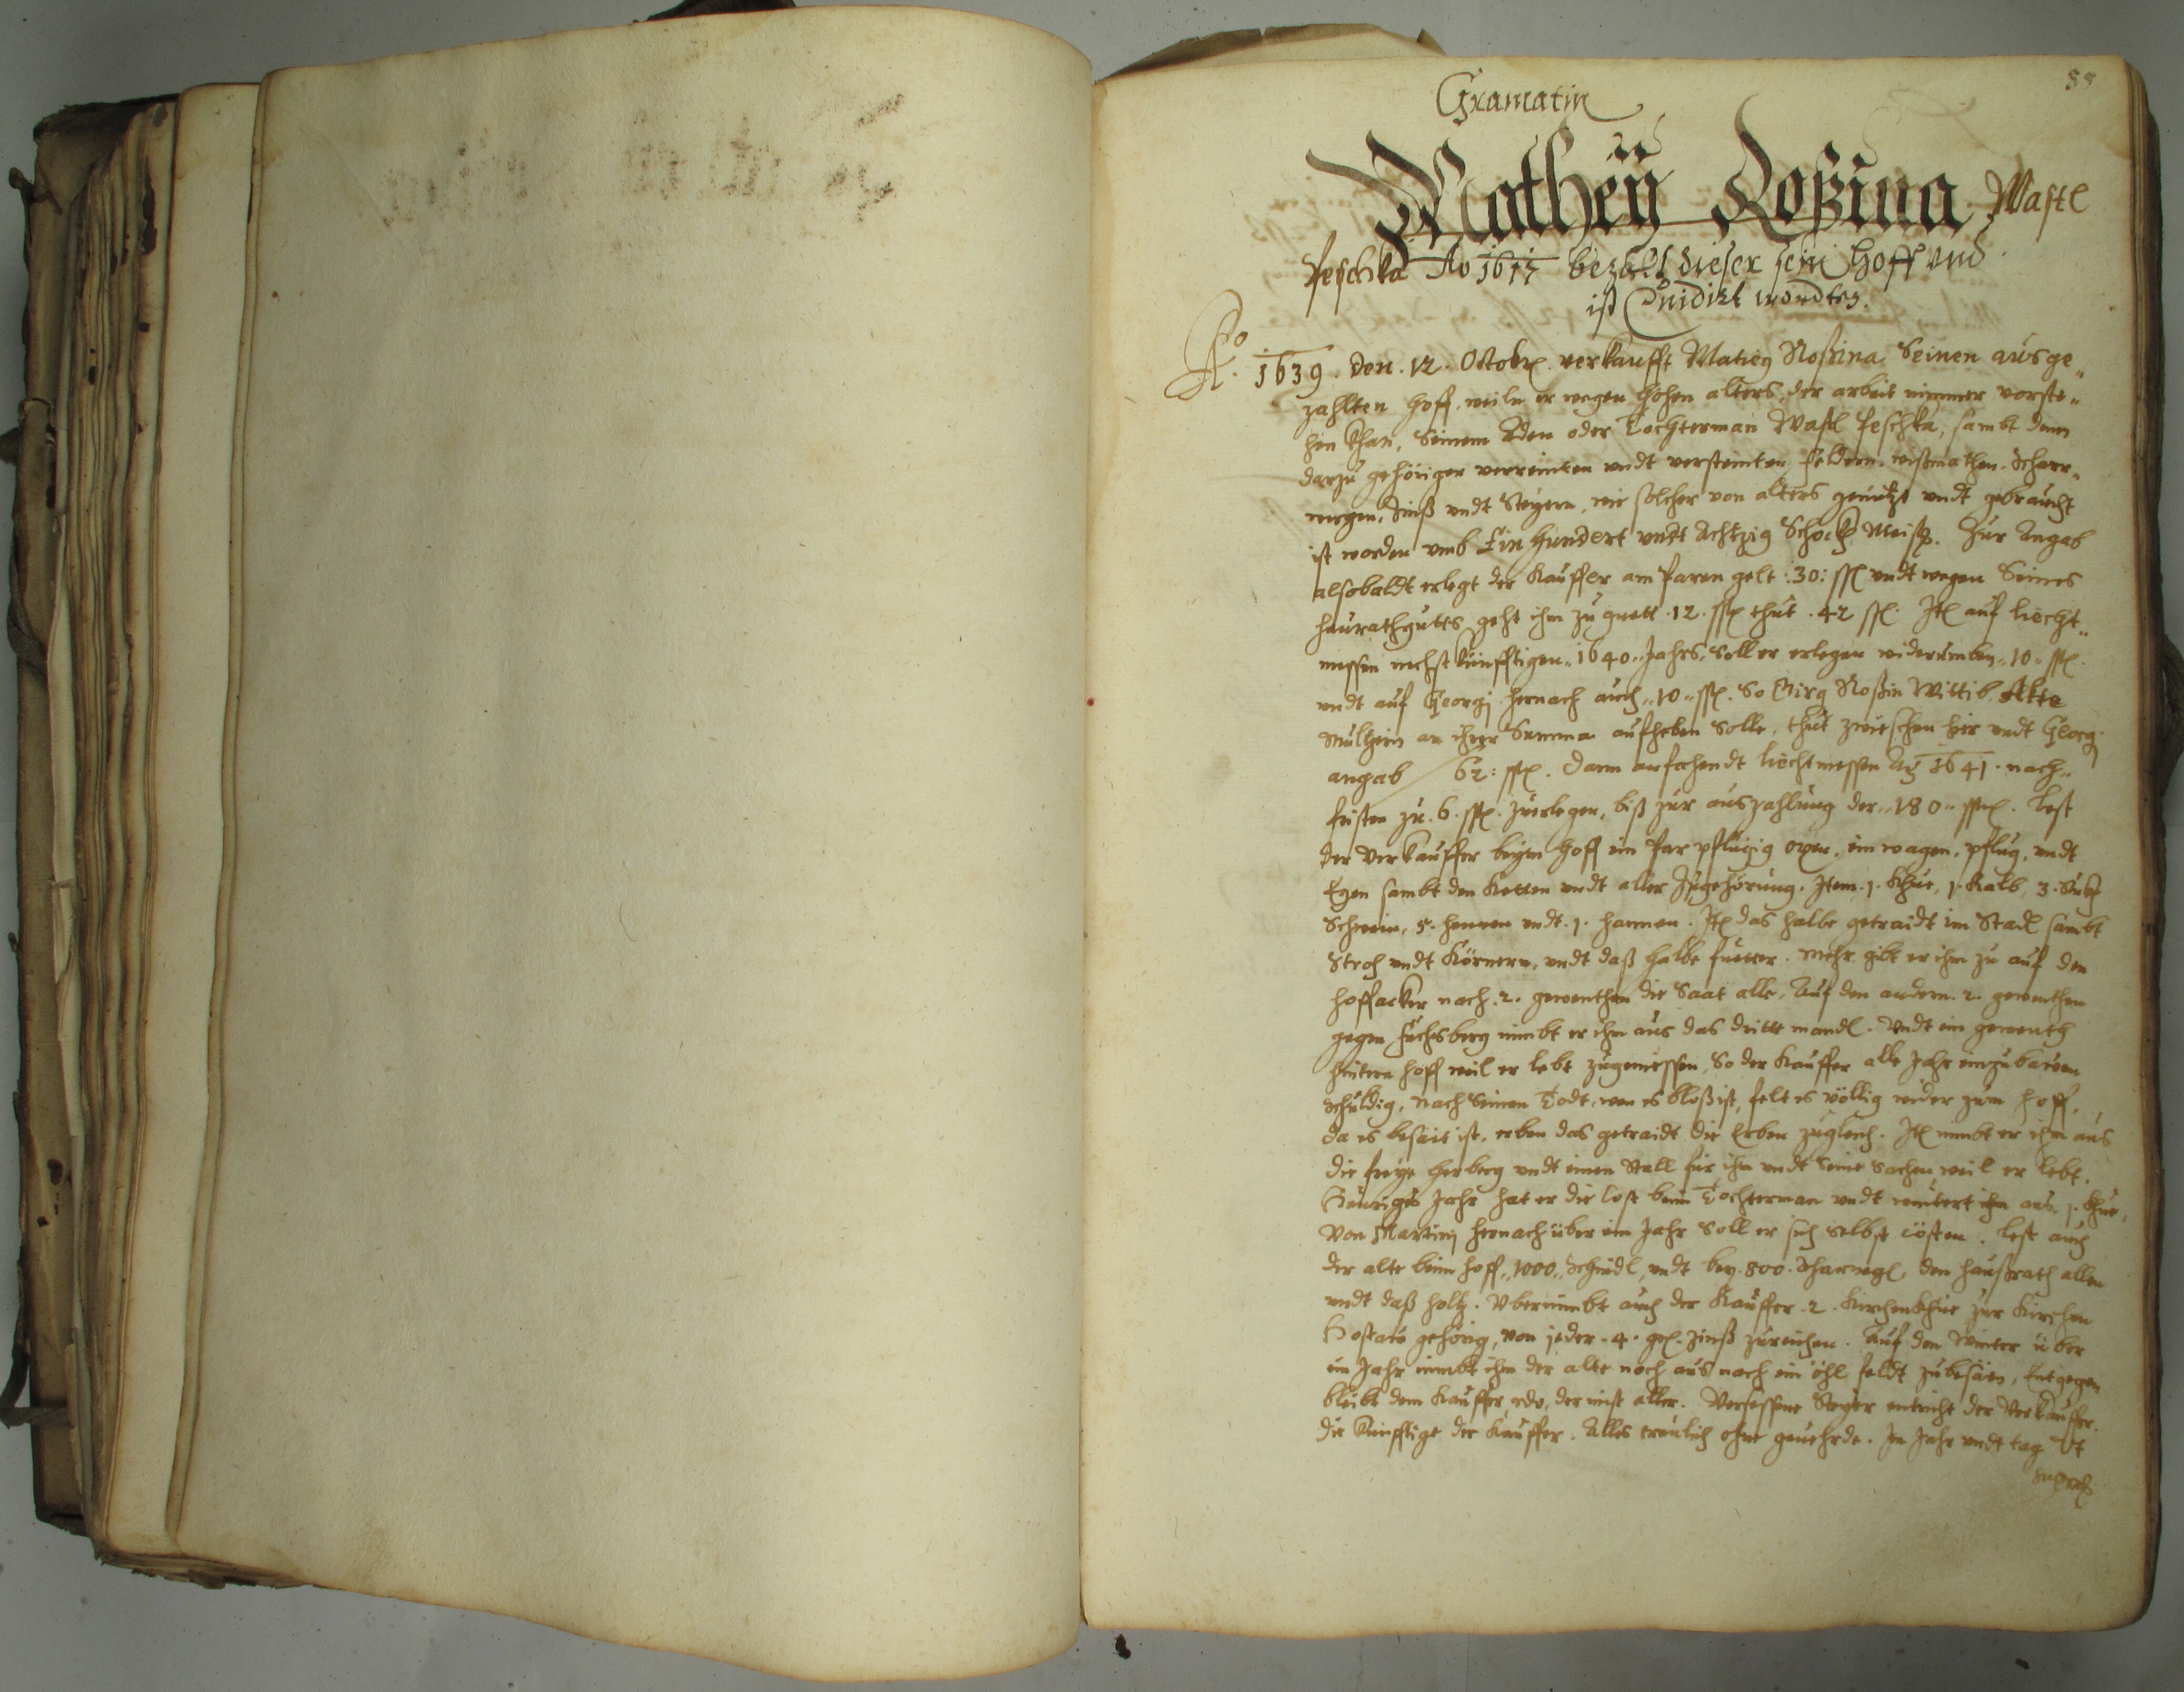 55
Gramatin
Mathëÿ Roßina Wastl
Peschka Ao 1617 bezalt dieser sein Hoff und
ist worden.
Ao 1639. Den. 12. Octobr. verkaufft Mathey Roßina Seinen ausge„
zahlten Hoff, weiln er wegen hohen alters, der arbeit nimmer vorste„
hen Khan, Seinem Aden oder Tochterman Wastl Peschka, sambt denen
darzu gehörigen verreinten vndt versteinten feldern, wißmathen, Scharr„
wegen, Zinß vndt Steyern, wie solcher von alters genutzt vndt gebraucht
ist worden vmb Ein Hundert vndt Achtzig Schockh Meiß. Zur Angab
alsobaldt erlegt der Kauffer am paren gelt :30: ßl vndt wegen Seines
heurathgutts geht ihm zu guett .12. ßl thut .42 ßl. Itl auf liecht„
messen nechst künfftigen„ 1640„ Jahrs, Soll er erlegen widerumben„ 10„ ßl.
vndt auf Georgj hernach auch„ 10„ ßl. So Girg Roßin Wittib Alte
an ihrer Summa aufheben Solle, thut zwieschen hir vndt Georgj
angab 62: ßl. Dann anfahendt liechtmessen Ao 1641. nach„
fristen zu .6. ßl. zuerlegen, biß zur auszahlung der„ 180„ ßl. Lest
der Verkauffer beym Hoff ein Par pflügig oxen, ein wagen, pflug, vndt
Egen sambt den Ketten vndt aller Zugehörung. Item .1. Khue, 1. Kalb, 3. Stuckh
Schwein, 5. hennen vndt .1. hannen. Itl das halbe getraidt im Stadl sambt
Stroh vndt Körnern, vndt daß halbe fuetter. Mehr gibt er ihm zu auf den
hoffacker nach .2. gewenthen die Saat alle, Auf den andern .2. gewenthen
gegen Fuchsberg nimbt er ihm aus das dritte mandl. Vndt ein gewenth
hintern hoff weil er lebt zugeniessen, So der Kauffer alle Jahr einzubauen
Schuldig, nach Seinen Todt, wen es bloß ist, felt es völlig wider zum hoff,
da es besäit ist, erben das getraidt die Erben zugleich. Itl nimbt er ihm aus
die freye Herberg vndt einen Stall für ihm vndt Seine Sachen weil er lebt.
Heuriges Jahr hat er die Cost beim Tochterman vndt wintert ihm aus .1. Khue,
Von Martinj hernach über ein Jahr Soll er sich Selbst cösten. Lest auch
der alte beim hoff„ 1000„ Schindl, vndt bey .800. Scharnegl, den haußrath allen
vndt daß holtz. Vbernimbt auch der Kauffer .2. Kirchenkhüe zur Kirchen
Hostau gehörig, von jeder .4. gl. Zinß zureichen. Auf den Winter über
ein Jahr nimbt ihm der alte noch aus nach ein feldt zubesäen, Entgegen
bleibt dem Kauffer, der mist aller. Versessene Steyer entricht der Verkauffer,
die künfftige der Kauffer. Alles treulich ohne geuehrde. Im Jahr vndt tag Vt
supra.